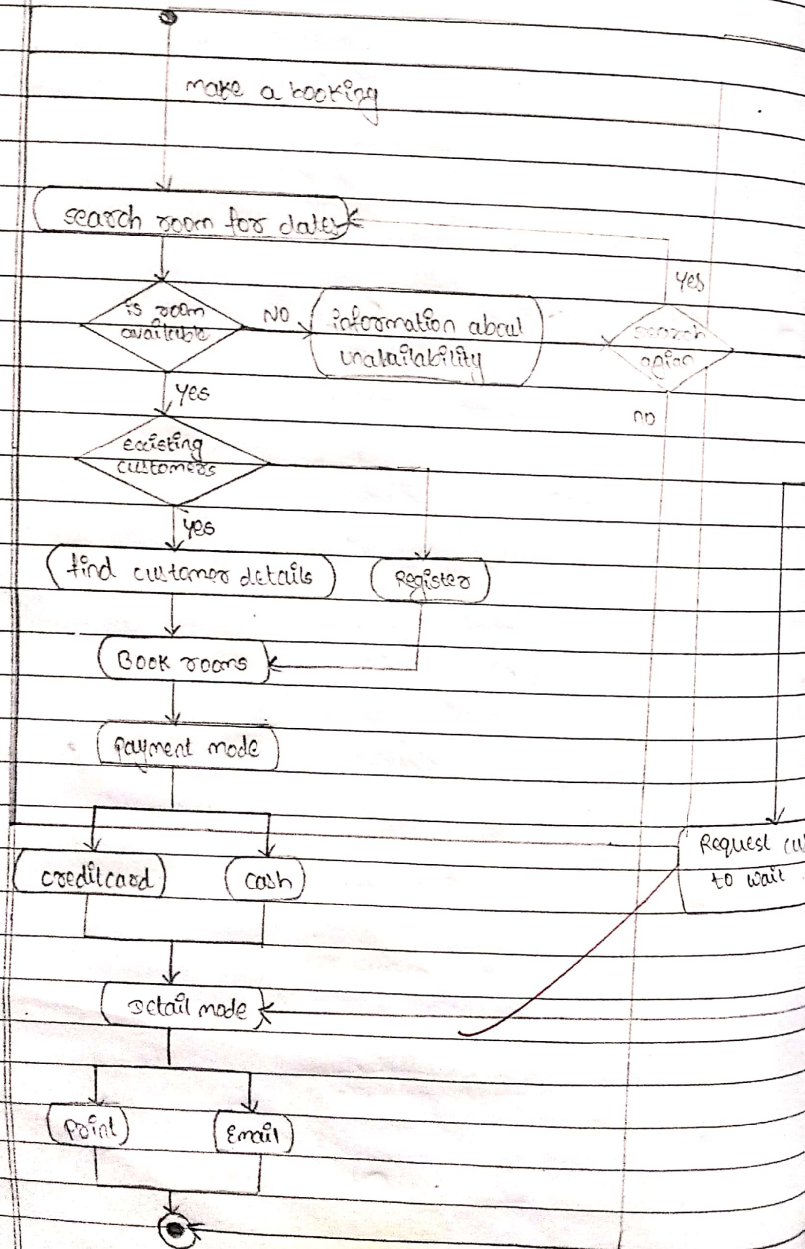 make a booking
search room for dates
Yes
is room
available
NO
information about
unavailability
search
again
Yes
no
existing
customers
Yes
find customer details
Register
Book rooms
payment mode
Request cu
to wait
creditcard
cash
detail mode
Point
Email